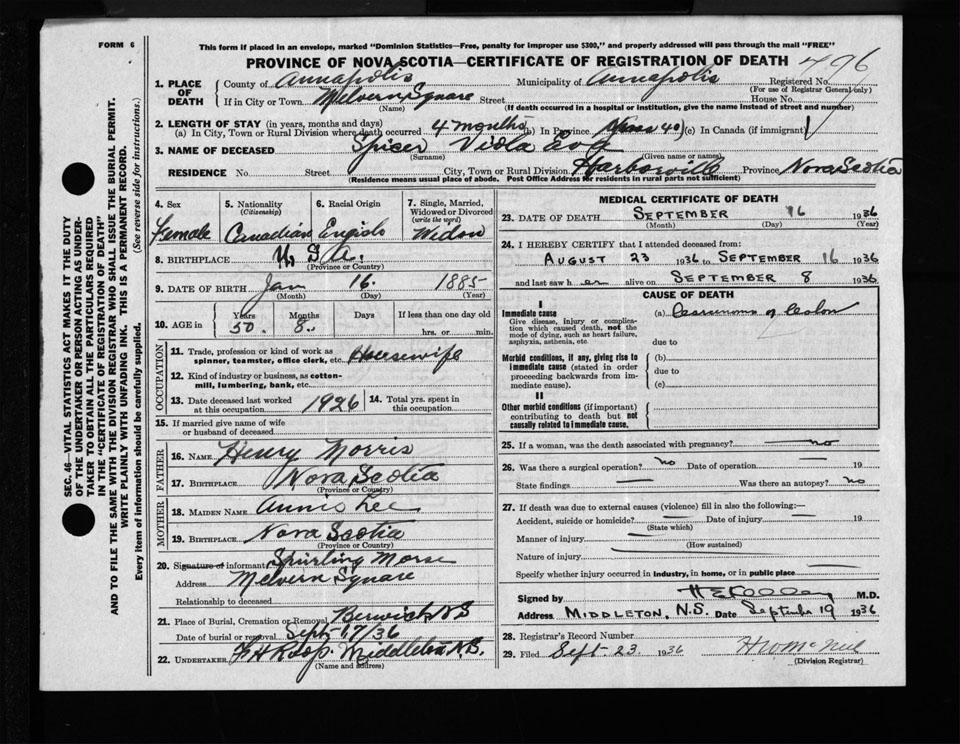 FORM 6
This form if placed in an envelope, marked "Dominion Statistics—Free, penalty for improper use $300," and properly addressed will pass through the mail "FREE"
PROVINCE OF NOVA SCOTIA—CERTIFICATE OF REGISTRATION OF DEATH 796
1. PLACE OF DEATH
County of Annapolis Municipality of Annapolis Registered No.
(For use of Registrar General only)
If in City or Town Melvern Square Street House No.
(Name) (If death occurred in a hospital or institution, give the name instead of street and number)
2. LENGTH OF STAY (in years, months and days)
(a) In City, Town or Rural Division where death occurred 4 months (b) In Province (c) In Canada (if immigrant)
3. NAME OF DECEASED Spicer Viola
(Surname) (Given name or names)
RESIDENCE No. Street City, Town or Rural Division Harborville Province Nova Scotia
(Residence means usual place of abode. Post Office Address for residents in rural parts not sufficient)
4. Sex 5. Nationality (Citizenship) 6. Racial Origin 7. Single, Married, Widowed or Divorced (write the word)
Female Canadian English Widow
8. BIRTHPLACE U.S.A.
(Province or Country)
9. DATE OF BIRTH Jan 16. 1885
(Month) (Day) (Year)
10. AGE in Years Months Days If less than one day old
50. 8. hrs. or min.
OCCUPATION
11. Trade, profession or kind of work as spinner, teamster, office clerk, etc. Housewife
12. Kind of industry or business, as cotton-mill, lumbering, bank, etc.
13. Date deceased last worked at this occupation 1926 14. Total yrs. spent in this occupation
15. If married give name of wife or husband of deceased
FATHER
16. NAME Henry Morris
17. BIRTHPLACE Nova Scotia
(Province or Country)
MOTHER
18. MAIDEN NAME Annie Lee
19. BIRTHPLACE Nova Scotia
(Province or Country)
20. Signature of informant Spurling Morse
Address Melvern Square
Relationship to deceased
21. Place of Burial, Cremation or Removal Berwick NS
Date of burial or removal Sept 17/36
22. UNDERTAKER Middleton N.S.
(Name and address)
MEDICAL CERTIFICATE OF DEATH
23. DATE OF DEATH SEPTEMBER 16 1936
(Month) (Day) (Year)
24. I HEREBY CERTIFY that I attended deceased from:
AUGUST 23 1936 to SEPTEMBER 16 1936
and last saw her alive on SEPTEMBER 8 1936
CAUSE OF DEATH
I
Immediate cause (a) Carcinoma of Colon
Give disease, injury or complication which caused death, not the mode of dying, such as heart failure, asphyxia, asthenia, etc.
due to
Morbid conditions, if any, giving rise to immediate cause (stated in order proceeding backwards from immediate cause).
(b)
due to
(c)
II
Other morbid conditions (if important) contributing to death but not causally related to immediate cause.
25. If a woman, was the death associated with pregnancy? no
26. Was there a surgical operation? no Date of operation 19
State findings Was there an autopsy? no
27. If death was due to external causes (violence) fill in also the following:—
Accident, suicide or homicide? Date of injury 19
(State which)
Manner of injury
(How sustained)
Nature of injury
Specify whether injury occurred in industry, in home, or in public place
Signed by M.D.
Address MIDDLETON, N.S. Date September 19 1936
28. Registrar's Record Number
29. Filed Sept. 23. 1936 H W McNeil
(Division Registrar)
SEC. 46—VITAL STATISTICS ACT MAKES IT THE DUTY
OF THE UNDERTAKER OR PERSON ACTING AS UNDER-
TAKER TO OBTAIN ALL THE PARTICULARS REQUIRED
IN THE "CERTIFICATE OF REGISTRATION OF DEATH"
AND TO FILE THE SAME WITH THE DIVISION REGISTRAR WHO SHALL ISSUE THE BURIAL PERMIT.
WRITE PLAINLY WITH UNFADING INK. THIS IS A PERMANENT RECORD.
Every item of information should be carefully supplied. (See reverse side for instructions.)